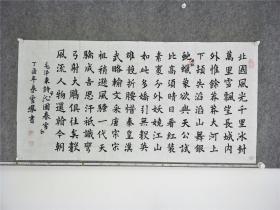 北國風光千里冰封
萬里雪飄望長城内
外惟餘莽莽大河上
下頓失滔滔山舞銀
蛇原馳蠟象欲與天公試
比高須晴日看紅裝
素裹分外妖嬈江山
如此多嬌引無數英
雄競折腰惜秦皇漢
武略輸文采唐宗宋
祖稍遜風騷一代天
驕成吉思汗祇識彎
弓射大鵰俱往矣數
風流人物還看今朝
毛泽東詩沁園春雪
丁酉年春雲書